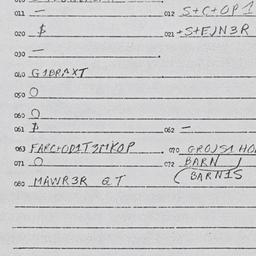 011 — 012 S+C+OP1
020 $ 021 +S+EJN3R
030 —
040 G1BRAXT
050 O
060 O
061 $ 062 —
063 070 GROJS1 HO
071 O 072 BARN
(BARN1S
080 MAWR3R GT